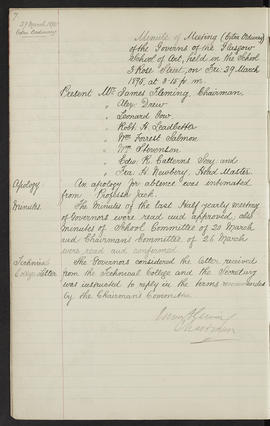 7
29 March 1895
Extra Ordinary
Minute of Meeting (Extra Ordinary)
of the Governors of the Glasgow
School of Art, held in the School
3 Rose Street, on Fri: 29 March
1895, at 3.15 p.m.
Present Mr James Fleming, Chairman.
" Alex Drew
" Leonard Gow
" Robt. A. Leadbetter
" Wm Forrest Salmon
" Wm Stevenson
" Edw. R. Catterns Secy and
" Fra H. Newbery, Head Master
Apology
An apology for absence was intimated
from Professor Jack.
Minutes
The Minutes of the last Half yearly meeting
of Governors were read and approved, also
Minutes of School Committee of 20 March
and Chairman's Committee of 26 March
were read and confirmed.
Technical
College Letter
The Governors considered the letter received
from the Technical College and the Secretary
was instructed to reply in the terms recommended
by the Chairman's Committee
Chairman